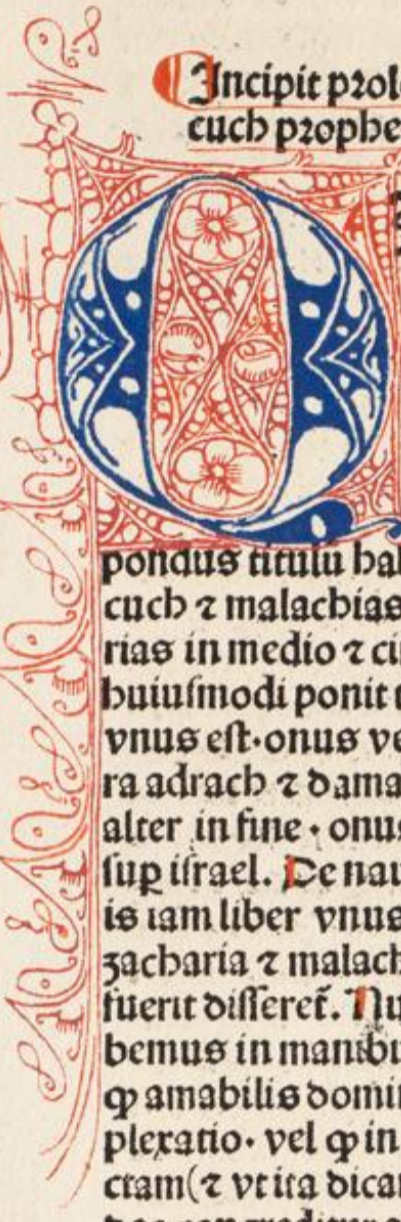 Incipit prol
cuch prophe
Q
pondus titulũ ha
cuch ⁊ malachias
rias in medio ⁊ ci
huiuſmodi ponit
vnus eſt·onus ve
ra adrach ⁊ dama
alter in fine · onus
ſuꝑ iſrael. De nau
is iam liber vnus
zacharia ⁊ malach
fuerit diſſeret̃. Nu
bemus in manibu
ꝙ amabilis domin
plexatio· vel ꝙ in
ctam(⁊ vt ita dicam